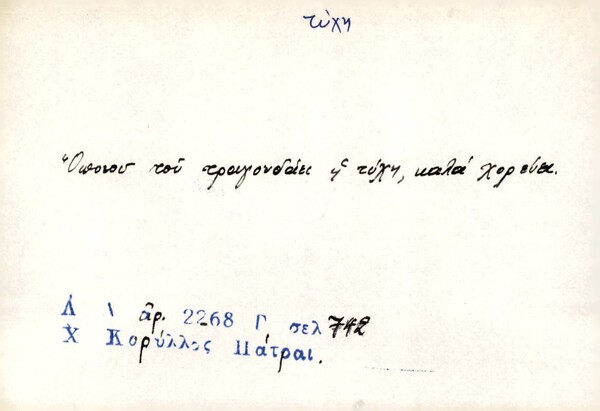 τύχη
Ὅποιου τοῦ τραγουδάει ἡ τύχη, καλά χορεύει.
Λ Α ἀρ. 2268 Γ σελ 742
Χ Κορύλλος Πάτραι.